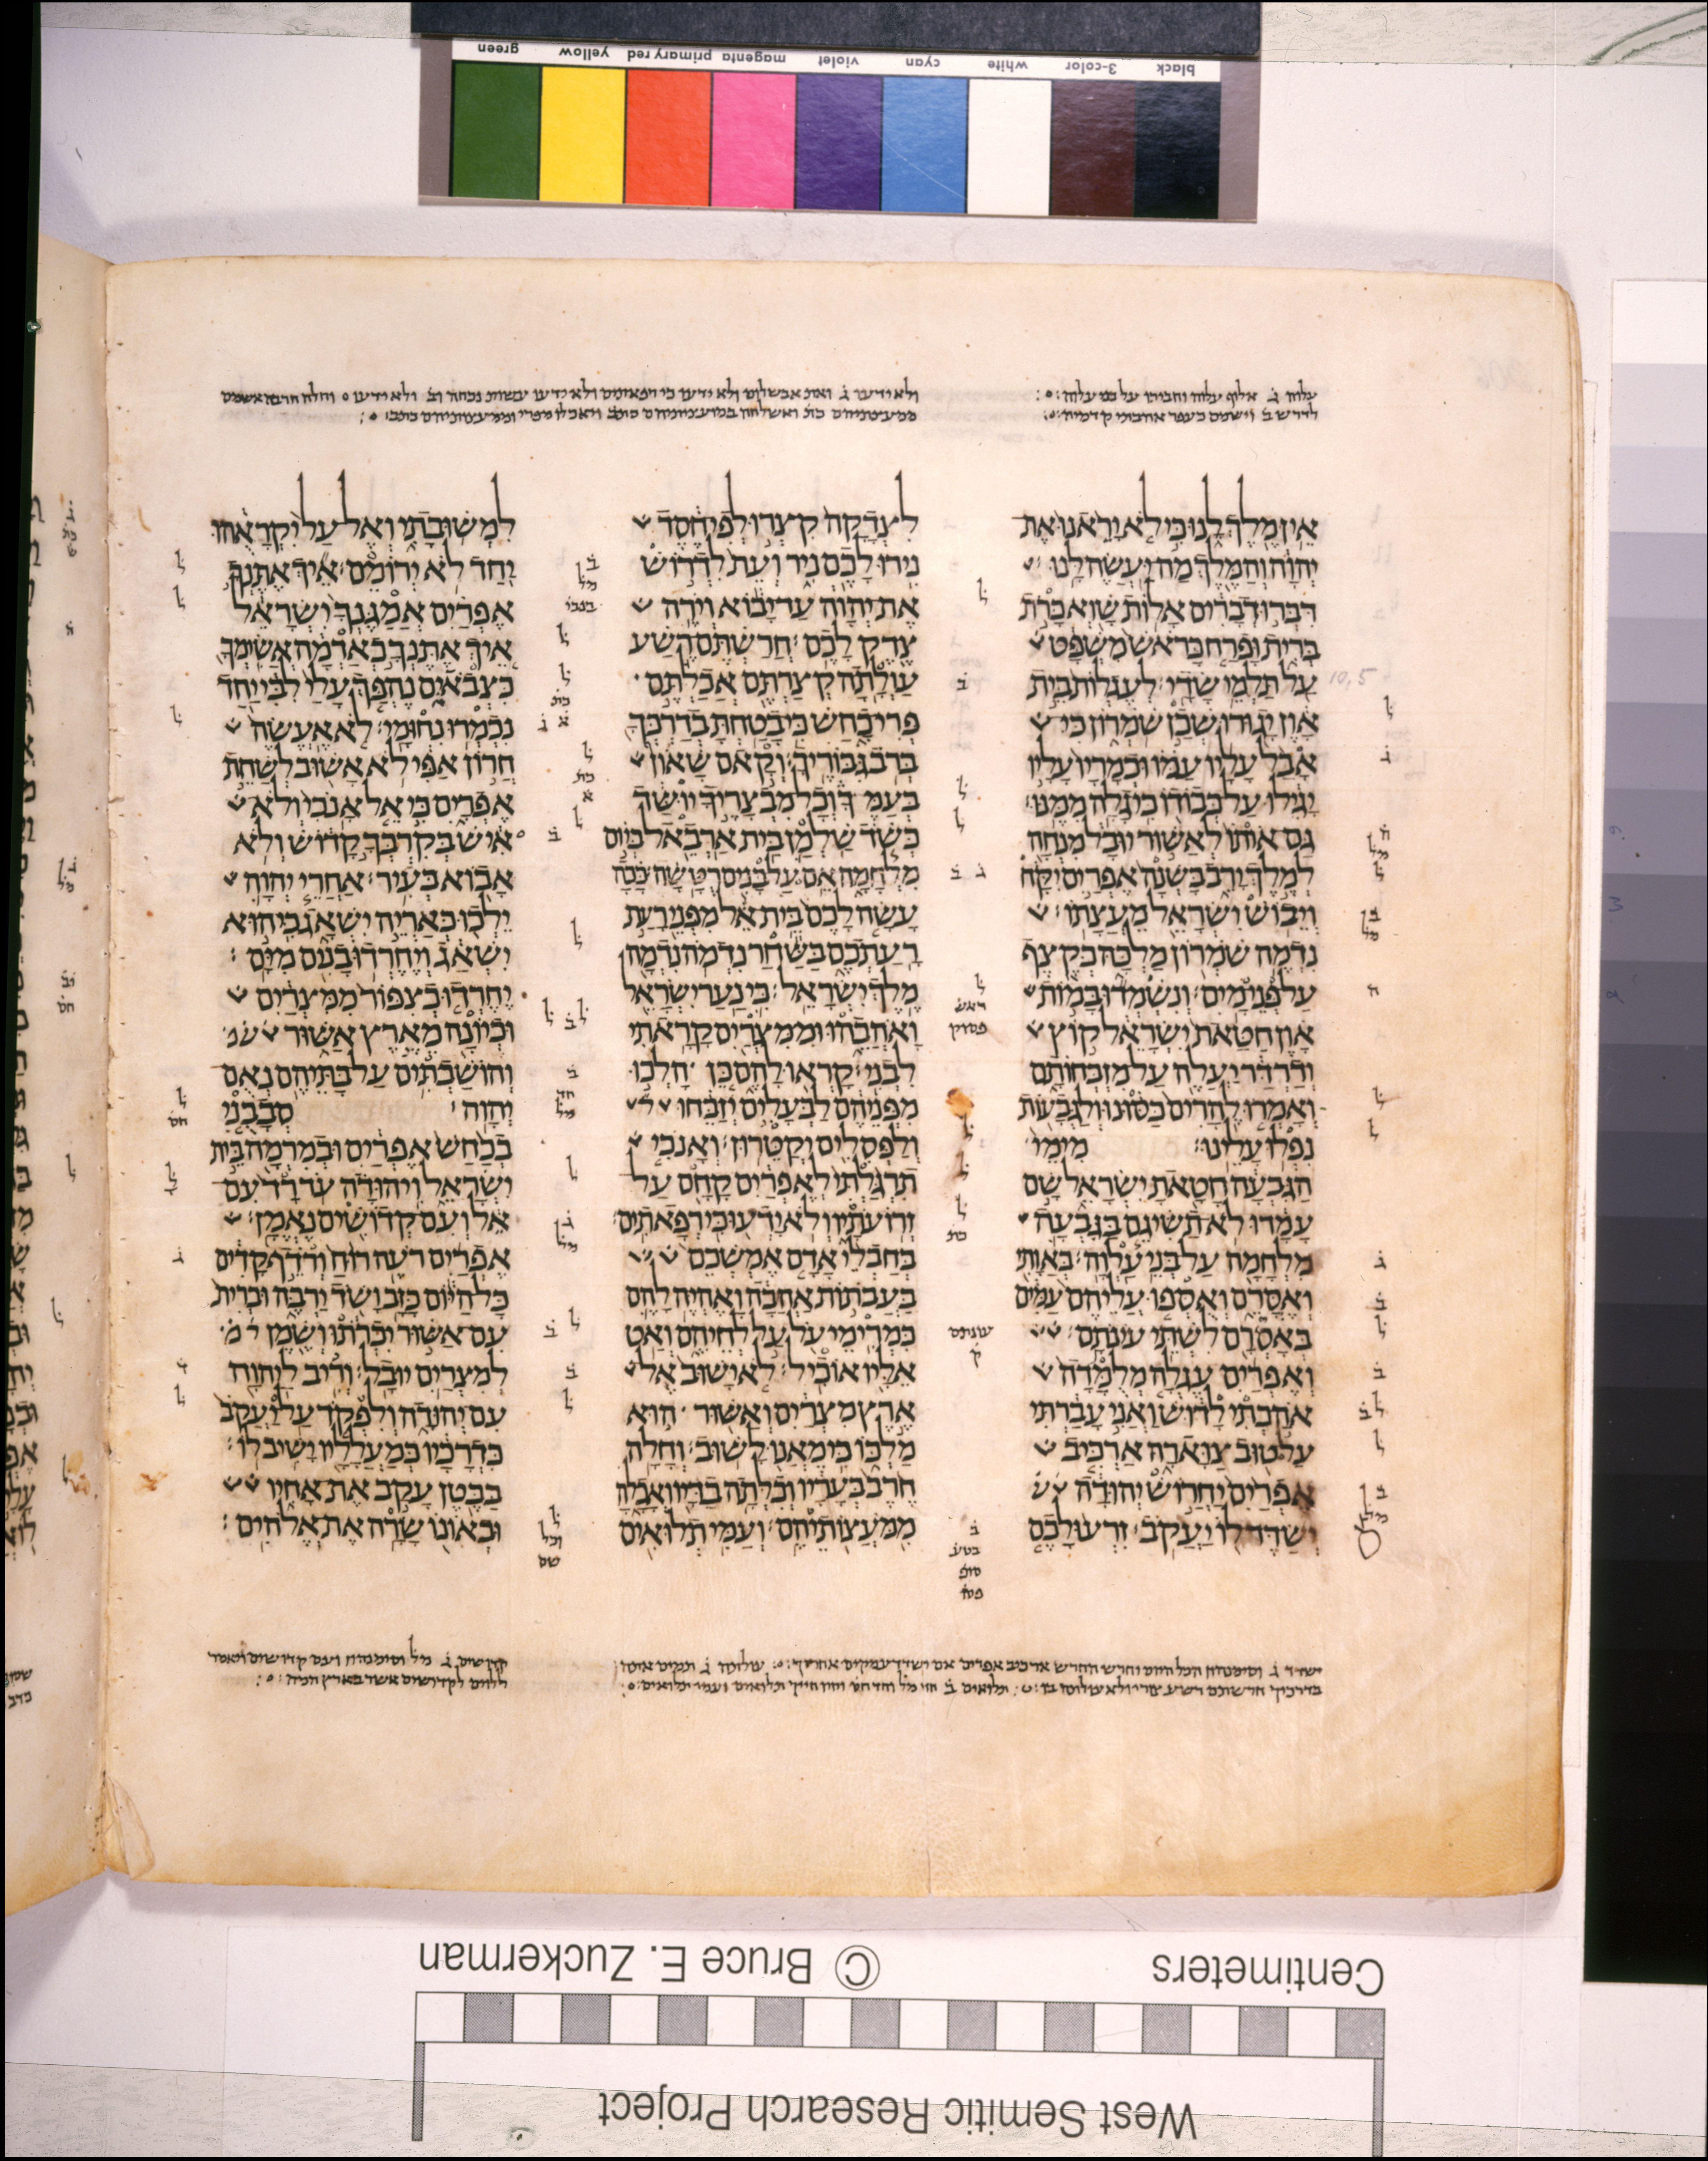 green yellow primary red magenta violet cyan white 3-color black
עלוה ג אלוף עלוה וחבירו על בני עלוה
ולא ידעו ג ואת אבשלום ולא ידעו כי רפאתים ולא ידעו עשות נכחה
אֵין מֶלֶךְ לָנוּ כִּי לֹא יָרֵאנוּ אֶת
יְהוָה וְהַמֶּלֶךְ מַה יַּעֲשֶׂה לָּנוּ׃
דִּבְּרוּ דְבָרִים אָלוֹת שָׁוְא כָּרֹת
בְּרִית וּפָרַח כָּרֹאשׁ מִשְׁפָּט
עַל תַּלְמֵי שָׂדָי׃ לְעֶגְלוֹת בֵּית
אָוֶן יָגוּרוּ שְׁכַן שֹׁמְרוֹן כִּי
אָבַל עָלָיו עַמּוֹ וּכְמָרָיו עָלָיו
יָגִילוּ עַל כְּבוֹדוֹ כִּי גָלָה מִמֶּנּוּ׃
גַּם אוֹתוֹ לְאַשּׁוּר יוּבָל מִנְחָה
לְמֶלֶךְ יָרֵב בָּשְׁנָה אֶפְרַיִם יִקָּח
וְיֵבוֹשׁ יִשְׂרָאֵל מֵעֲצָתוֹ׃
נִדְמֶה שֹׁמְרוֹן מַלְכָּהּ כְּקֶצֶף
עַל פְּנֵי מָיִם׃ וְנִשְׁמְדוּ בָּמוֹת
אָוֶן חַטַּאת יִשְׂרָאֵל קוֹץ
וְדַרְדַּר יַעֲלֶה עַל מִזְבְּחוֹתָם
וְאָמְרוּ לֶהָרִים כַּסּוּנוּ וְלַגְּבָעוֹת
נִפְלוּ עָלֵינוּ׃ מִימֵי
הַגִּבְעָה חָטָאתָ יִשְׂרָאֵל שָׁם
עָמָדוּ לֹא תַשִּׂיגֵם בַּגִּבְעָה
מִלְחָמָה עַל בְּנֵי עַלְוָה׃ בְּאַוָּתִי
וְאֶסֳּרֵם וְאֻסְּפוּ עֲלֵיהֶם עַמִּים
בְּאָסְרָם לִשְׁתֵּי עינֹתָם׃
וְאֶפְרַיִם עֶגְלָה מְלֻמָּדָה
אֹהַבְתִּי לָדוּשׁ וַאֲנִי עָבַרְתִּי
עַל טוּב צַוָּארָהּ אַרְכִּיב
אֶפְרַיִם יַחֲרוֹשׁ יְהוּדָה
יְשַׂדֶּד לוֹ יַעֲקֹב׃ זִרְעוּ לָכֶם
לִצְדָקָה קִצְרוּ לְפִי חֶסֶד
נִירוּ לָכֶם נִיר וְעֵת לִדְרוֹשׁ
אֶת יְהוָה עַד יָבוֹא וְיֹרֶה
צֶדֶק לָכֶם׃ חֲרַשְׁתֶּם רֶשַׁע
עַוְלָתָה קְצַרְתֶּם אֲכַלְתֶּם
פְּרִי כָחַשׁ כִּי בָטַחְתָּ בְדַרְכְּךָ
בְּרֹב גִּבּוֹרֶיךָ׃ וְקָאם שָׁאוֹן
בְּעַמֶּךָ וְכָל מִבְצָרֶיךָ יוּשַּׁד
כְּשֹׁד שַׁלְמַן בֵּית אַרְבֵאל בְּיוֹם
מִלְחָמָה אֵם עַל בָּנִים רֻטָּשָׁה׃ כָּכָה
עָשָׂה לָכֶם בֵּית אֵל מִפְּנֵי רָעַת
רָעַתְכֶם בַּשַּׁחַר נִדְמֹה נִדְמָה
מֶלֶךְ יִשְׂרָאֵל׃ כִּי נַעַר יִשְׂרָאֵל
וָאֹהֲבֵהוּ וּמִמִּצְרַיִם קָרָאתִי
לִבְנִי׃ קָרְאוּ לָהֶם כֵּן הָלְכוּ
מִפְּנֵיהֶם לַבְּעָלִים יְזַבֵּחוּ
וְלַפְּסִלִים יְקַטֵּרוּן׃ וְאָנֹכִי
תִרְגַּלְתִּי לְאֶפְרַיִם קָחָם עַל
זְרוֹעֹתָיו וְלֹא יָדְעוּ כִּי רְפָאתִים׃
בְּחַבְלֵי אָדָם אֶמְשְׁכֵם
בַּעֲבֹתוֹת אַהֲבָה וָאֶהְיֶה לָהֶם
כִּמְרִימֵי עֹל עַל לְחֵיהֶם וְאַט
אֵלָיו אוֹכִיל׃ לֹא יָשׁוּב אֶל
אֶרֶץ מִצְרַיִם וְאַשּׁוּר הוּא
מַלְכּוֹ כִּי מֵאֲנוּ לָשׁוּב׃ וְחָלָה
חֶרֶב בְּעָרָיו וְכִלְּתָה בַדָּיו וְאָכָלָה
מִמֹּעֲצוֹתֵיהֶם׃ וְעַמִּי תְלוּאִים
לִמְשׁוּבָתִי וְאֶל עַל יִקְרָאֻהוּ
יַחַד לֹא יְרוֹמֵם׃ אֵיךְ אֶתֶּנְךָ
אֶפְרַיִם אֲמַגֶּנְךָ יִשְׂרָאֵל
אֵיךְ אֶתֶּנְךָ כְאַדְמָה אֲשִׂימְךָ
כִּצְבֹאיִם נֶהְפַּךְ עָלַי לִבִּי יַחַד
נִכְמְרוּ נִחוּמָי׃ לֹא אֶעֱשֶׂה
חֲרוֹן אַפִּי לֹא אָשׁוּב לְשַׁחֵת
אֶפְרָיִם כִּי אֵל אָנֹכִי וְלֹא
אִישׁ בְּקִרְבְּךָ קָדוֹשׁ וְלֹא
אָבוֹא בְּעִיר׃ אַחֲרֵי יְהוָה
יֵלְכוּ כְּאַרְיֵה יִשְׁאָג כִּי הוּא
יִשְׁאַג וְיֶחֶרְדוּ בָנִים מִיָּם׃
יֶחֶרְדוּ כְצִפּוֹר מִמִּצְרַיִם
וּכְיוֹנָה מֵאֶרֶץ אַשּׁוּר
וְהוֹשַׁבְתִּים עַל בָּתֵּיהֶם נְאֻם
יְהוָה׃ סְבָבֻנִי
בְכַחַשׁ אֶפְרַיִם וּבְמִרְמָה בֵּית
יִשְׂרָאֵל וִיהוּדָה עֹד רָד עִם
אֵל וְעִם קְדוֹשִׁים נֶאֱמָן׃
אֶפְרַיִם רֹעֶה רוּחַ וְרֹדֵף קָדִים
כָּל הַיּוֹם כָּזָב וָשֹׁד יַרְבֶּה וּבְרִית
עִם אַשּׁוּר יִכְרֹתוּ וְשֶׁמֶן
לְמִצְרַיִם יוּבָל׃ וְרִיב לַיהוָה
עִם יְהוּדָה וְלִפְקֹד עַל יַעֲקֹב
כִּדְרָכָיו כְּמַעֲלָלָיו יָשִׁיב לוֹ׃
בַּבֶּטֶן עָקַב אֶת אָחִיו
וּבְאוֹנוֹ שָׂרָה אֶת אֱלֹהִים׃
תלואים ב חיי מל וחד חס והיו חייך תלואים ועמי תלואים
קדושים ג מל וסימנהון ועם קדושים ויאמר
ללוים לקדושים אשר בארץ המה
Centimeters © Bruce E. Zuckerman
West Semitic Research Project